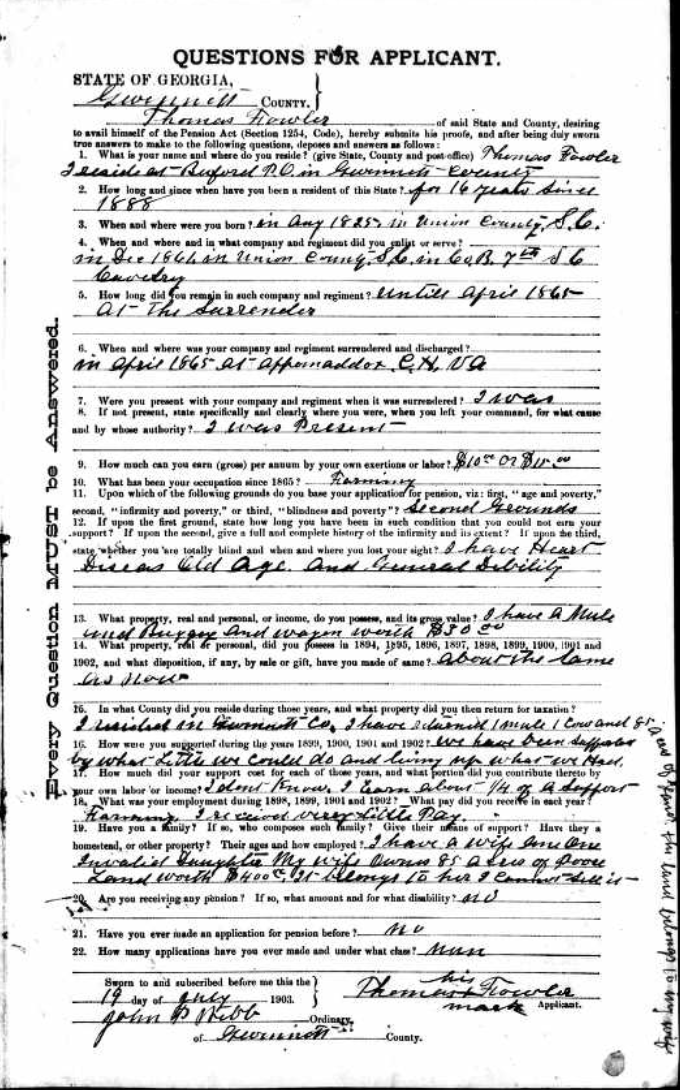 QUESTIONS FOR APPLICANT.
STATE OF GEORGIA,
Gwinnett COUNTY.
Thomas Fowler of said State and County, desiring
to avail himself of the Pension Act (Section 1254, Code), hereby submits his proofs, and after being duly sworn
true answers to make to the following questions, deposes and answers as follows:
1. What is your name and where do you reside? (give State, County and post-office) Thomas Fowler
I reside at Buford P.O. in Gwinnett County
2. How long and since when have you been a resident of this State? for 16 years Since
1888
3. When and where were you born? in Aug 1825 in Union County, S.C.
4. When and where and in what company and regiment did you enlist or serve?
in Dec 1861 in Union County, S.C. in Co. B, 7th S C
Cavelry
5. How long did you remain in such company and regiment? Untill April 1865
At The Surrender
6. When and where was your company and regiment surrendered and discharged?
in April 1865 at Appomaddox C.H. VA
7. Were you present with your company and regiment when it was surrendered? I was
8. If not present, state specifically and clearly where you were, when you left your command, for what cause
and by whose authority? I was Present
9. How much can you earn (gross) per annum by your own exertions or labor? $10.00 or $15.00
10. What has been your occupation since 1865? Farming
11. Upon which of the following grounds do you base your application for pension, viz: first, "age and poverty,"
second, "infirmity and poverty," or third, "blindness and poverty"? Second Grounds
12. If upon the first ground, state how long you have been in such condition that you could not earn your
support? If upon the second, give a full and complete history of the infirmity and its extent? If upon the third,
state whether you are totally blind and when and where you lost your sight? I have Heart
Diseas Old Age. And General Dibility
13. What property, real and personal, or income, do you possess, and its gross value? I have A Mule
and Buggy And wagon worth $50.00
14. What property, real or personal, did you possess in 1894, 1895, 1896, 1897, 1898, 1899, 1900, 1901 and
1902, and what disposition, if any, by sale or gift, have you made of same? About the Same
As now
15. In what County did you reside during those years, and what property did you then return for taxation?
I resided in Gwinnett Co. I have returned 1 mule 1 Cow and 85
acres of Land the land belongs to my wife
16. How were you supported during the years 1899, 1900, 1901 and 1902? We have been supported
by what Little we could do and living up what we Had.
17. How much did your support cost for each of those years, and what portion did you contribute thereto by
your own labor or income? I dont Know. I Earn about 1/4 of A Support
18. What was your employment during 1898, 1899, 1901 and 1902? What pay did you receive in each year?
Farming. I received very Little Pay.
19. Have you a family? If so, who composes such family? Give their means of support? Have they a
homestead, or other property? Their ages and how employed? I have a wife One
Invalid Daughter My wife Owns 85 Acres of Poore
Land worth $400.00 It belongs to her I Cannot Sell it
20. Are you receiving any pension? If so, what amount and for what disability? no
21. Have you ever made an application for pension before? No
22. How many applications have you ever made and under what class? Nun
Sworn to and subscribed before me this the
19 day of July 1903.
his
Thomas Fowler
mark Applicant.
John P Webb Ordinary,
of Gwinnett County.
Every Question MUST be Answered.